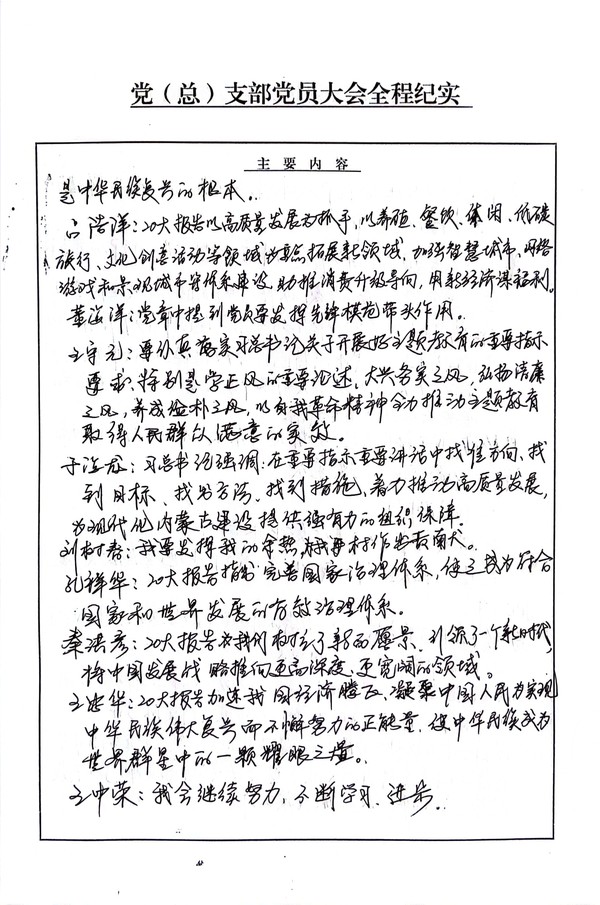 党（总）支部党员大会全程纪实
主要内容
是中华民族复兴的根本。
吕浩洋：20大报告以高质量发展为抓手，以养殖、餐饮、休闲、低碳
旅行、文化创意活动等领域为重点拓展新领域，加强智慧城市、网络
游戏和景观城市等体系建设，助推消费升级导向，用新经济谋福利。
董海洋：党章中提到党员要发挥先锋模范带头作用。
王守元：要认真落实习总书记关于开展好主题教育的重要指示
要求，特别是学正风的重要论述，大兴务实之风，弘扬清廉
之风，养成俭朴之风，以自我革命精神全力推动主题教育
取得人民群众满意的实效。
于海龙：习总书记强调：在重要指示重要讲话中找准方向、找
到目标、找出方法、找到措施，着力推动高质量发展，
为现代化内蒙古建设提供强有力的组织保障。
刘树春：我要发挥我的余热，为我村作出贡献。
孔祥华：20大报告指出完善国家治理体系，使之成为符合
国家和世界发展的有效治理体系。
秦洪彦：20大报告为我们树立了新的愿景，引领了一个新时代，
将中国发展战略推向更高深度、更宽阔的领域。
王忠华：20大报告加速我国经济腾飞，凝聚中国人民为实现
中华民族伟大复兴而不懈努力的正能量，使中华民族成为
世界群星中的一颗耀眼之星。
王中荣：我会继续努力，不断学习、进步。